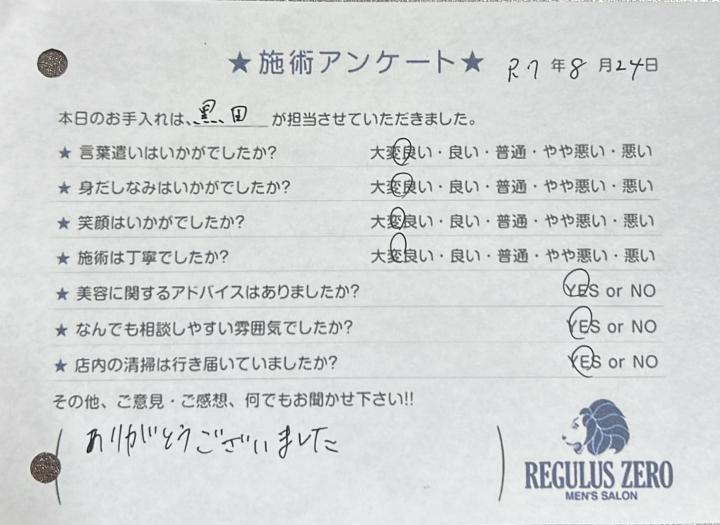 ★施術アンケート★ R7年8月24日
本日のお手入れは、黒田が担当させていただきました。
★ 言葉遣いはいかがでしたか? 大変良い・良い・普通・やや悪い・悪い
★ 身だしなみはいかがでしたか? 大変良い・良い・普通・やや悪い・悪い
★ 笑顔はいかがでしたか? 大変良い・良い・普通・やや悪い・悪い
★ 施術は丁寧でしたか? 大変良い・良い・普通・やや悪い・悪い
★ 美容に関するアドバイスはありましたか? YES or NO
★ なんでも相談しやすい雰囲気でしたか? YES or NO
★ 店内の清掃は行き届いていましたか? YES or NO
その他、ご意見・ご感想、何でもお聞かせ下さい!!
ありがとうございました
REGULUS ZERO
MEN'S SALON